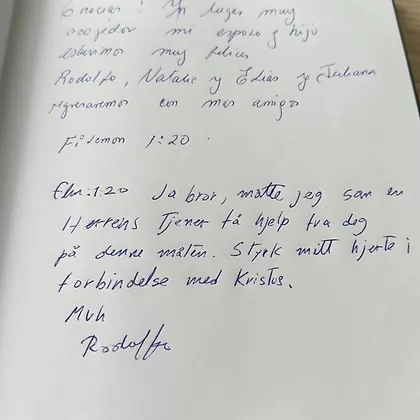 Gracias! Un lugar muy
acojedor mi esposo y hijo
estuvimos muy felices
Rodolfo, Natalie y Elias y Juliana
regresaremos con mas amigos
Filemon 1:20
1:20 Ja bror, måtte jeg som en
Herrens Tjener få hjelp fra deg
på denne måten. Styrk mitt hjerte i
forbindelse med Kristus.
Mvh
Rodolfo